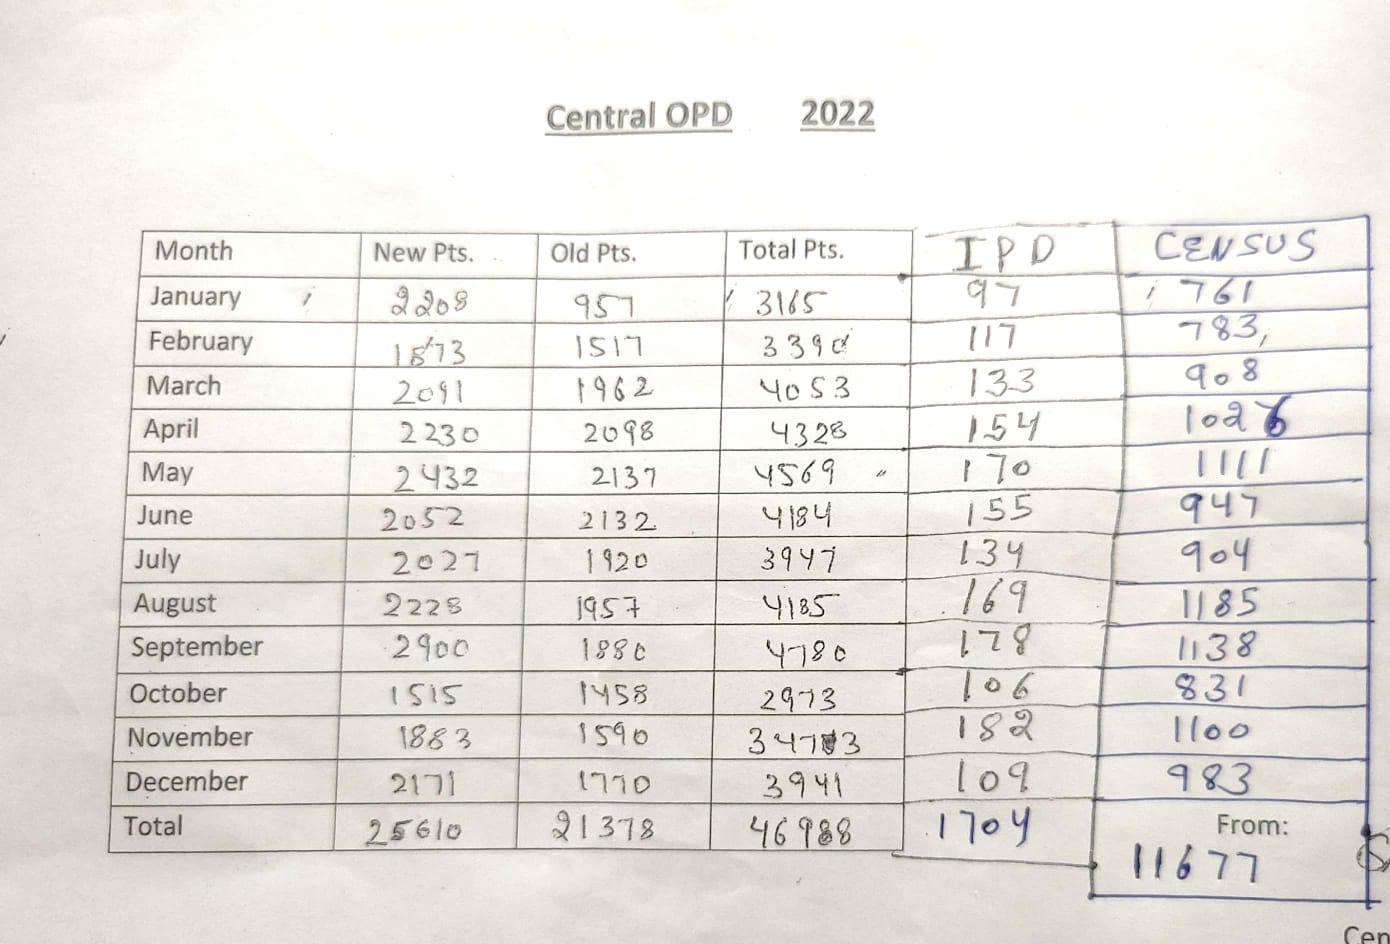 Central OPD 2022
Month New Pts. Old Pts. Total Pts. IPD CENSUS
January 2208 957 3165 97 761
February 1873 1517 3390 117 783,
March 2091 1962 4053 133 908
April 2230 2098 4328 154 1026
May 2432 2137 4569 170 1111
June 2052 2132 4184 155 947
July 2027 1920 3947 134 904
August 2228 1957 4185 169 1185
September 2900 1880 4780 178 1138
October 1515 1458 2973 106 831
November 1883 1590 3473 182 1100
December 2171 1770 3941 109 983
Total 25610 21378 46988 1704 From:
11677
Cen